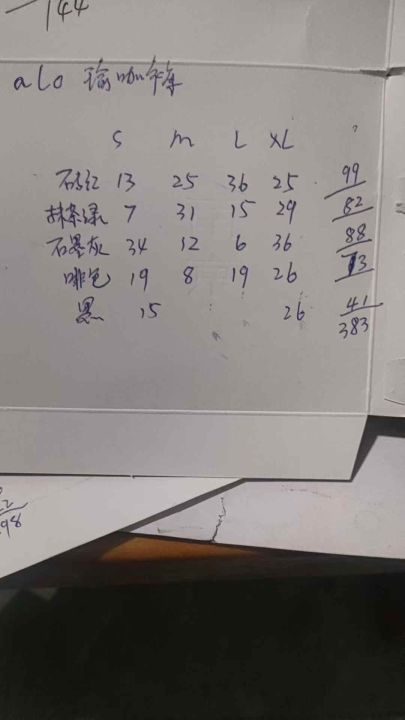 144
alo 瑜咖年库
S M L XL
石红 13 25 36 25 99
抹茶绿 7 31 15 29 82
石墨灰 34 12 6 36 88
啡色 19 8 19 26 73
黑 15 26 41
383
98